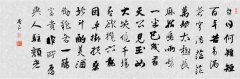 白日何短短
百年苦易滿
蒼穹浩茫茫
萬劫太極長
麻姑垂兩鬢
一半已成霜
天公見玉女
大笑億千場
吾欲攬六龍
回車掛扶桑
北斗酌美酒
勸龍各一觴
富貴非所願
與人駐顏光